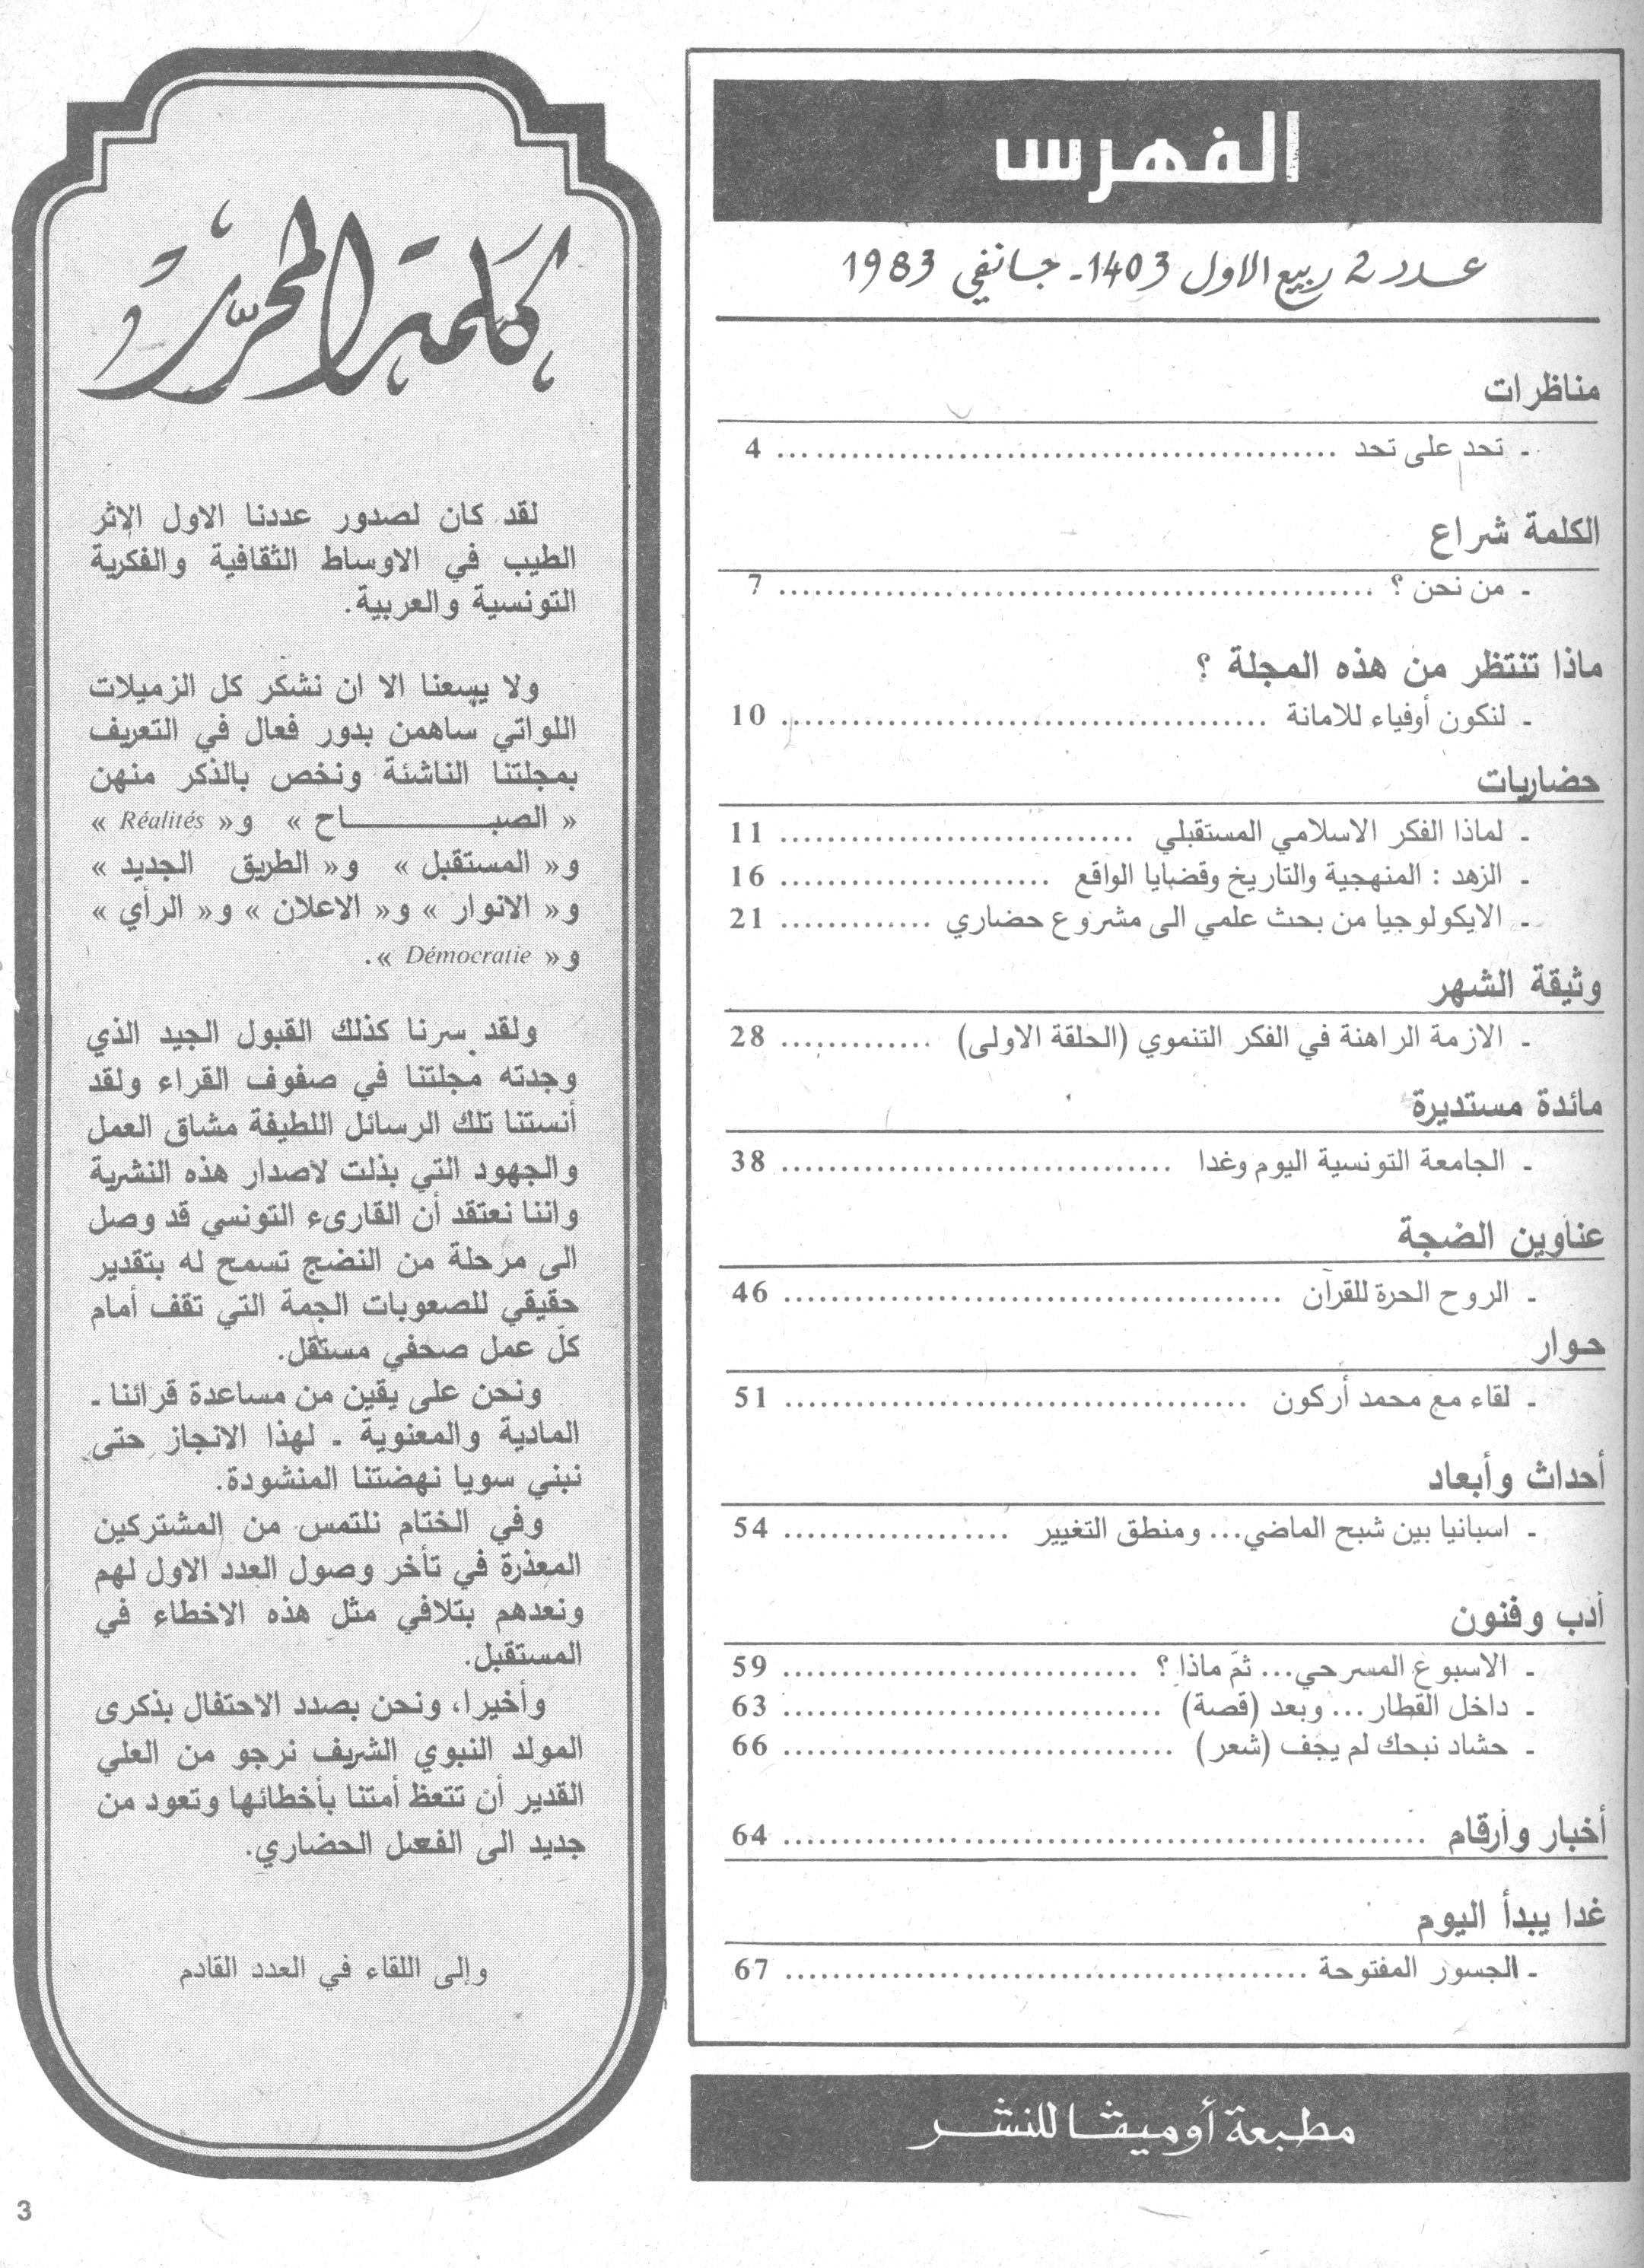 الفهرس
عدد 2 ربيع الاول 1403 ـ جانفي 1983
مناظرات
ـ تحد على تحد ........ 4
الكلمة شراع
ـ من نحن ؟ ........ 7
ماذا تنتظر من هذه المجلة ؟
ـ لنكون أوفياء للامانة ........ 10
حضاريات
ـ لماذا الفكر الاسلامي المستقبلي ........ 11
ـ الزهد : المنهجية والتاريخ وقضايا الواقع ........ 16
ـ الايكولوجيا من بحث علمي الى مشروع حضاري ........ 21
وثيقة الشهر
ـ الازمة الراهنة في الفكر التنموي (الحلقة الاولى) ........ 28
مائدة مستديرة
ـ الجامعة التونسية اليوم وغدا ........ 38
عناوين الضجة
ـ الروح الحرة للقرآن ........ 46
حوار
ـ لقاء مع محمد أركون ........ 51
أحداث وأبعاد
ـ اسبانيا بين شبح الماضي... ومنطق التغيير ........ 54
أدب وفنون
ـ الاسبوع المسرحي... ثمّ ماذا ؟ ........ 59
ـ داخل القطار... وبعد (قصة) ........ 63
ـ حشاد نبحك لم يجف (شعر) ........ 66
أخبار وأرقام ........ 64
غدا يبدأ اليوم
ـ الجسور المفتوحة ........ 67
مطبعة أوميڨا للنشر
كلمة المحرر
لقد كان لصدور عددنا الاول الاثر
الطيب في الاوساط الثقافية والفكرية
التونسية والعربية.
ولا يسعنا الا ان نشكر كل الزميلات
اللواتي ساهمن بدور فعال في التعريف
بمجلتنا الناشئة ونخص بالذكر منهن
« الصبـــاح » و« Réalités »
و« المستقبل » و« الطريق الجديد »
و« الانوار » و« الاعلان » و« الرأي »
و« Démocratie ».
ولقد سرنا كذلك القبول الجيد الذي
وجدته مجلتنا في صفوف القراء ولقد
أنستنا تلك الرسائل اللطيفة مشاق العمل
والجهود التي بذلت لاصدار هذه النشرية
واننا نعتقد أن القارىء التونسي قد وصل
الى مرحلة من النضج تسمح له بتقدير
حقيقي للصعوبات الجمة التي تقف أمام
كلّ عمل صحفي مستقل.
ونحن على يقين من مساعدة قرائنا ـ
المادية والمعنوية ـ لهذا الانجاز حتى
نبني سويا نهضتنا المنشودة.
وفي الختام نلتمس من المشتركين
المعذرة في تأخر وصول العدد الاول لهم
ونعدهم بتلافي مثل هذه الاخطاء في
المستقبل.
وأخيرا، ونحن بصدد الاحتفال بذكرى
المولد النبوي الشريف نرجو من العلي
القدير أن تتعظ أمتنا بأخطائها وتعود من
جديد الى الفعل الحضاري.
وإلى اللقاء في العدد القادم
3